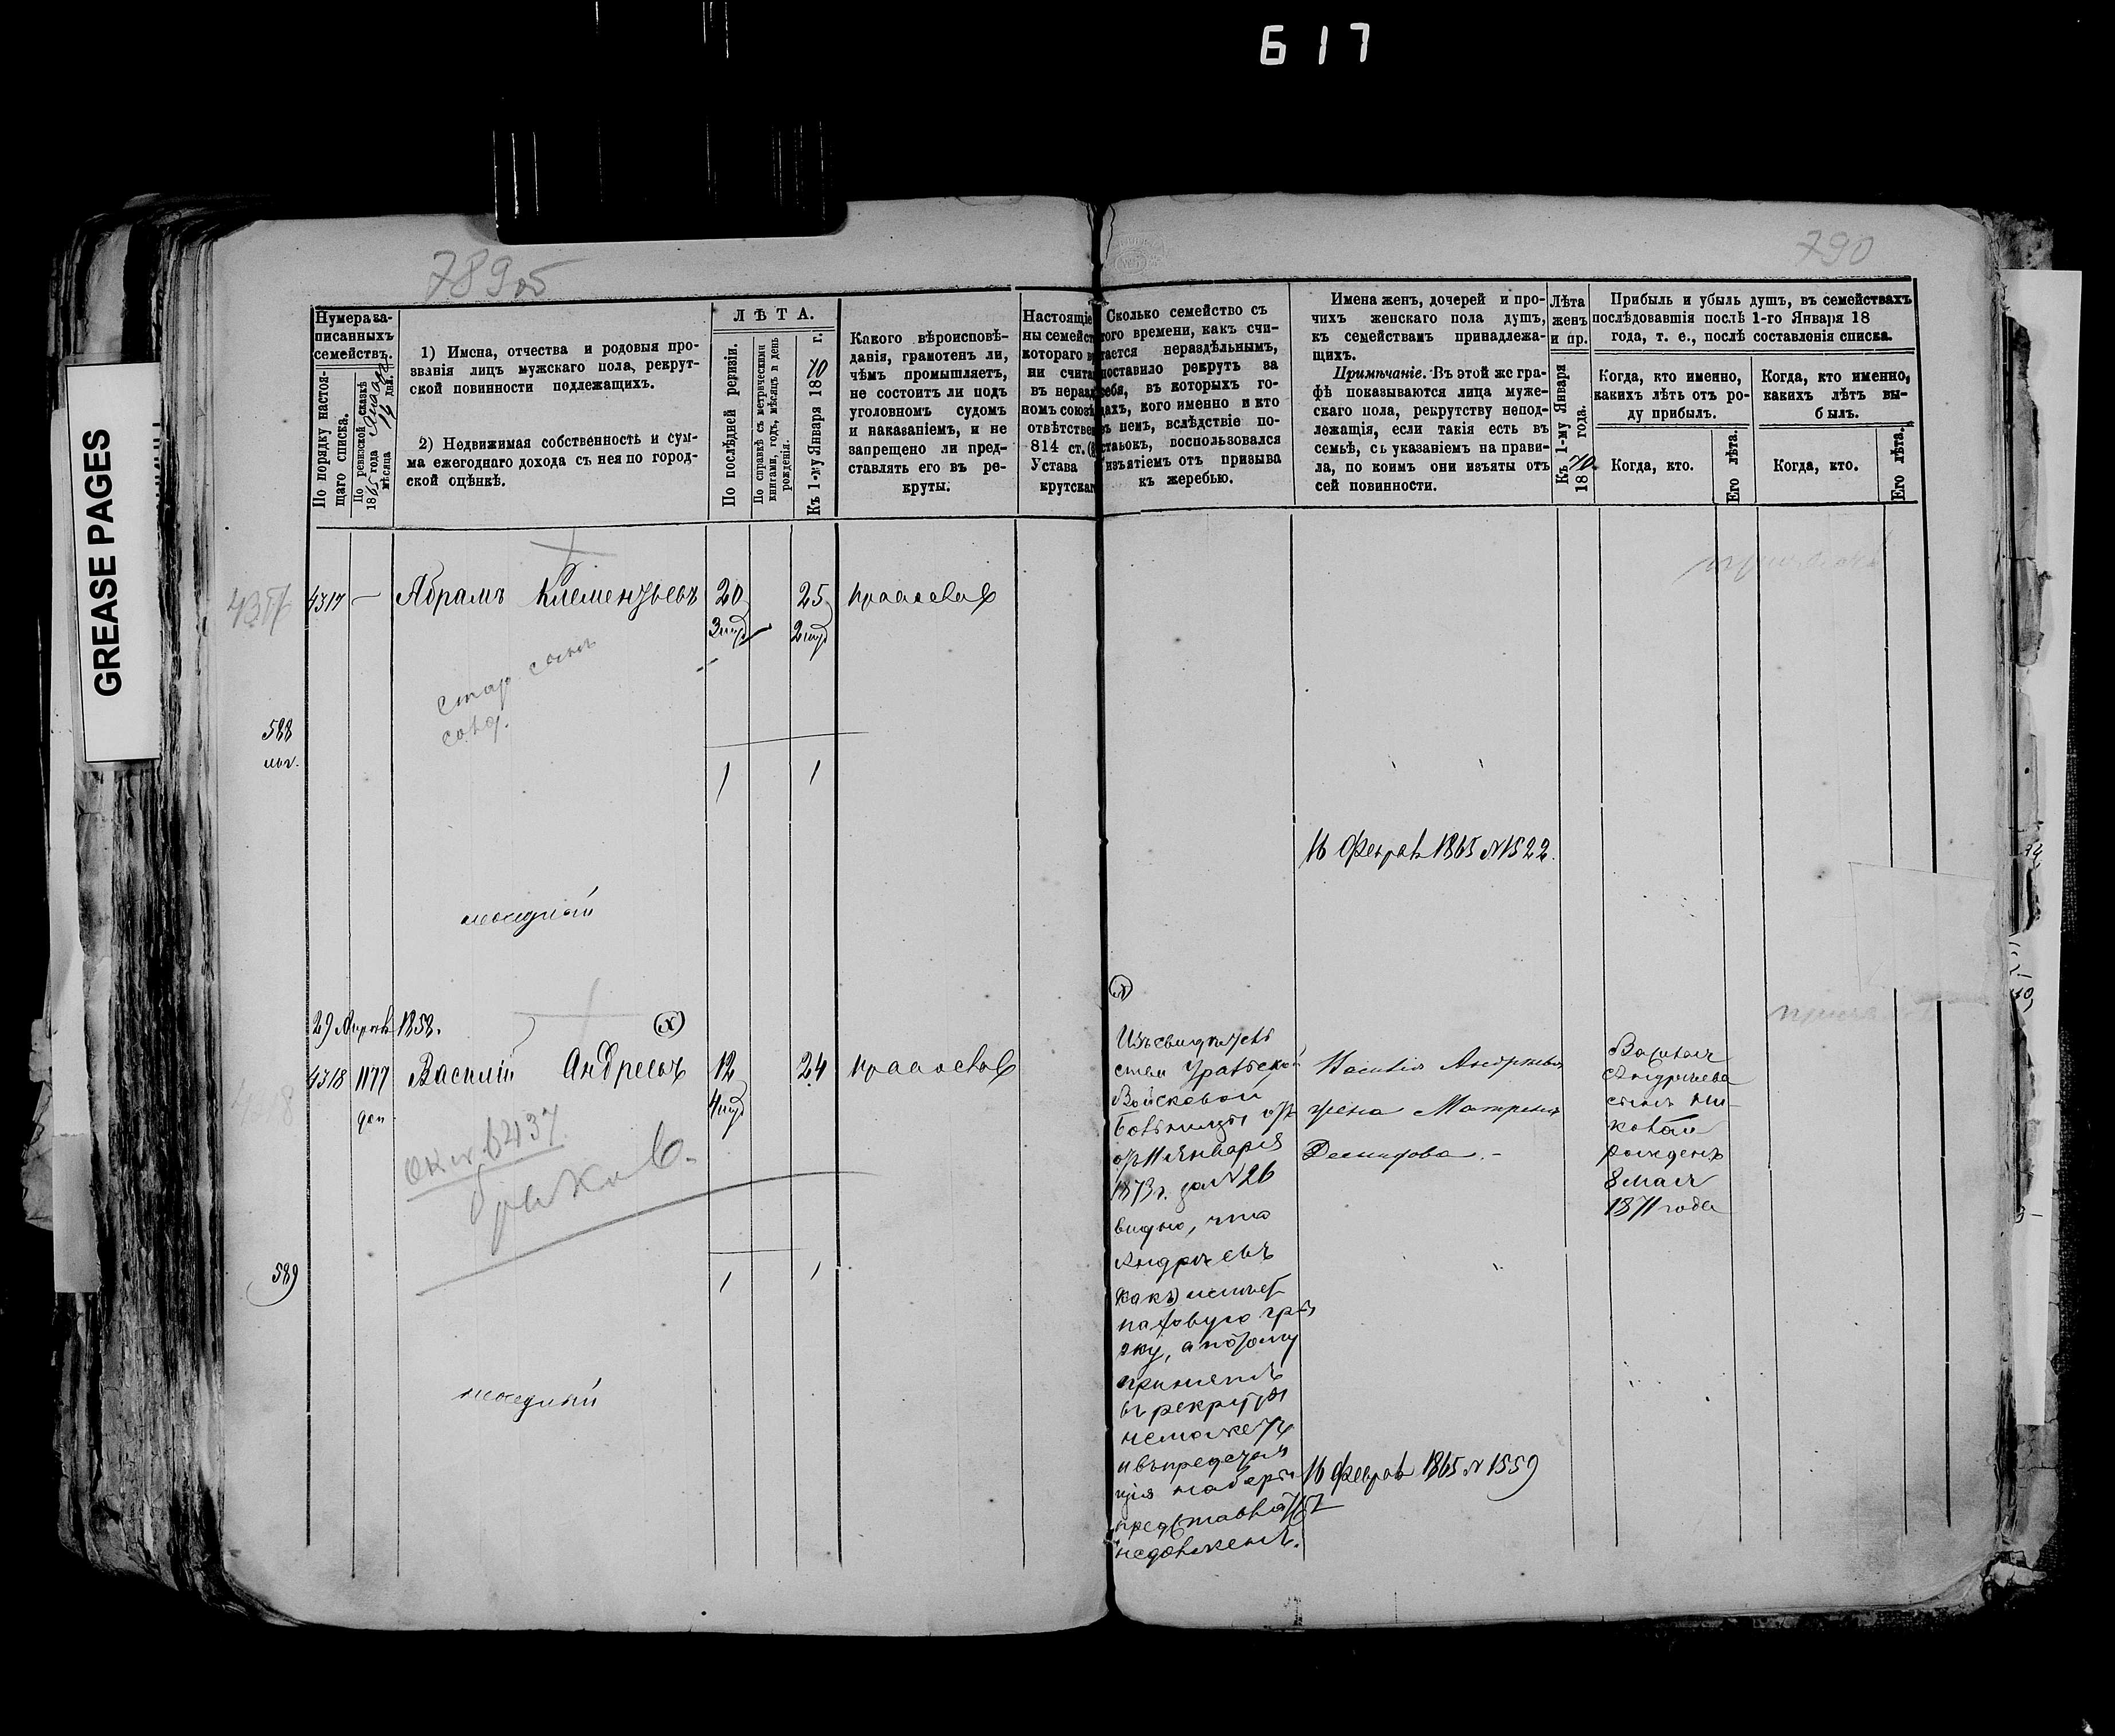 617
GREASE PAGES
789об
790
Нумера за-
писанныхъ
семействъ.
По порядку настоя-
щаго списка.
По ревизской сказкѣ
1865 года
мѣсяца 14 дня.
1) Имена, отчества и родовыя про-
званія лицъ мужскаго пола, рекрут-
ской повинности подлежащихъ.
2) Недвижимая собственность и сум-
ма ежегоднаго дохода съ нея по город-
ской оцѣнкѣ.
ЛѢТА.
По послѣдней ревизіи.
По справкѣ съ метрическими
книгами, годъ, мѣсяцъ и день
рожденія.
Къ 1-му Января 1870 г.
Какого вѣроисповѣ-
данія, грамотенъ ли,
чѣмъ промышляетъ,
не состоитъ ли подъ
уголовномъ судомъ
и наказаніемъ, и не
запрещено ли пред-
ставлять его въ ре-
круты.
Настоящіе
ны семейст
котораго в
ни счита
въ нераз
номъ союзѣ
отвѣтстве
814 ст.
Устава
крутска
Сколько семейство съ
того времени, какъ счи-
тается нераздѣльнымъ,
поставило рекрутъ за
себя, въ которыхъ го-
дахъ, кого именно и кто
въ немъ, вслѣдствіе по-
становокъ, воспользовался
изъятіемъ отъ призыва
къ жеребью.
Имена женъ, дочерей и про-
чихъ женскаго пола душъ,
къ семействамъ принадлежа-
щихъ.
Примѣчаніе. Въ этой же гра-
фѣ показываются лица муже-
скаго пола, рекрутству непод-
лежащія, если такія есть въ
семьѣ, съ указаніемъ на прави-
ла, по коимъ они изъяты отъ
сей повинности.
Лѣта
женъ
и пр.
Къ 1-му Января
1870 года.
Прибыль и убыль душъ, въ семействахъ
послѣдовавшія послѣ 1-го Января 18
года, т. е., послѣ составленія списка.
Когда, кто именно,
какихъ лѣтъ отъ ро-
ду прибылъ.
Когда, кто.
Его лѣта.
Когда, кто именно,
какихъ лѣтъ вы-
былъ.
Когда, кто.
Его лѣта.
4317 — Абрамъ Клементьевъ 20 25 православ
588
1 1
16 Феврал 1865 №1522.
29 Апрѣл 1858.
4318 1177 Василій Андреевъ 12 24 православ
доп.
589
1 1
Изъ свидѣтель
ства Уральской
Войсковой
Больницы отъ
11 Января
1873 г. за №26
видно, что
Андреевъ
какъ имѣет
паховую гры
жу, а потому
принятъ
въ рекруты
не можетъ
представлять
недолженъ.
Василія Андреева
жена Матрена
Демидова.
16 Феврал 1865 № 1559
Василія
Андреева
сынъ Ни-
колай
рожденъ
8 Мая
1871 года